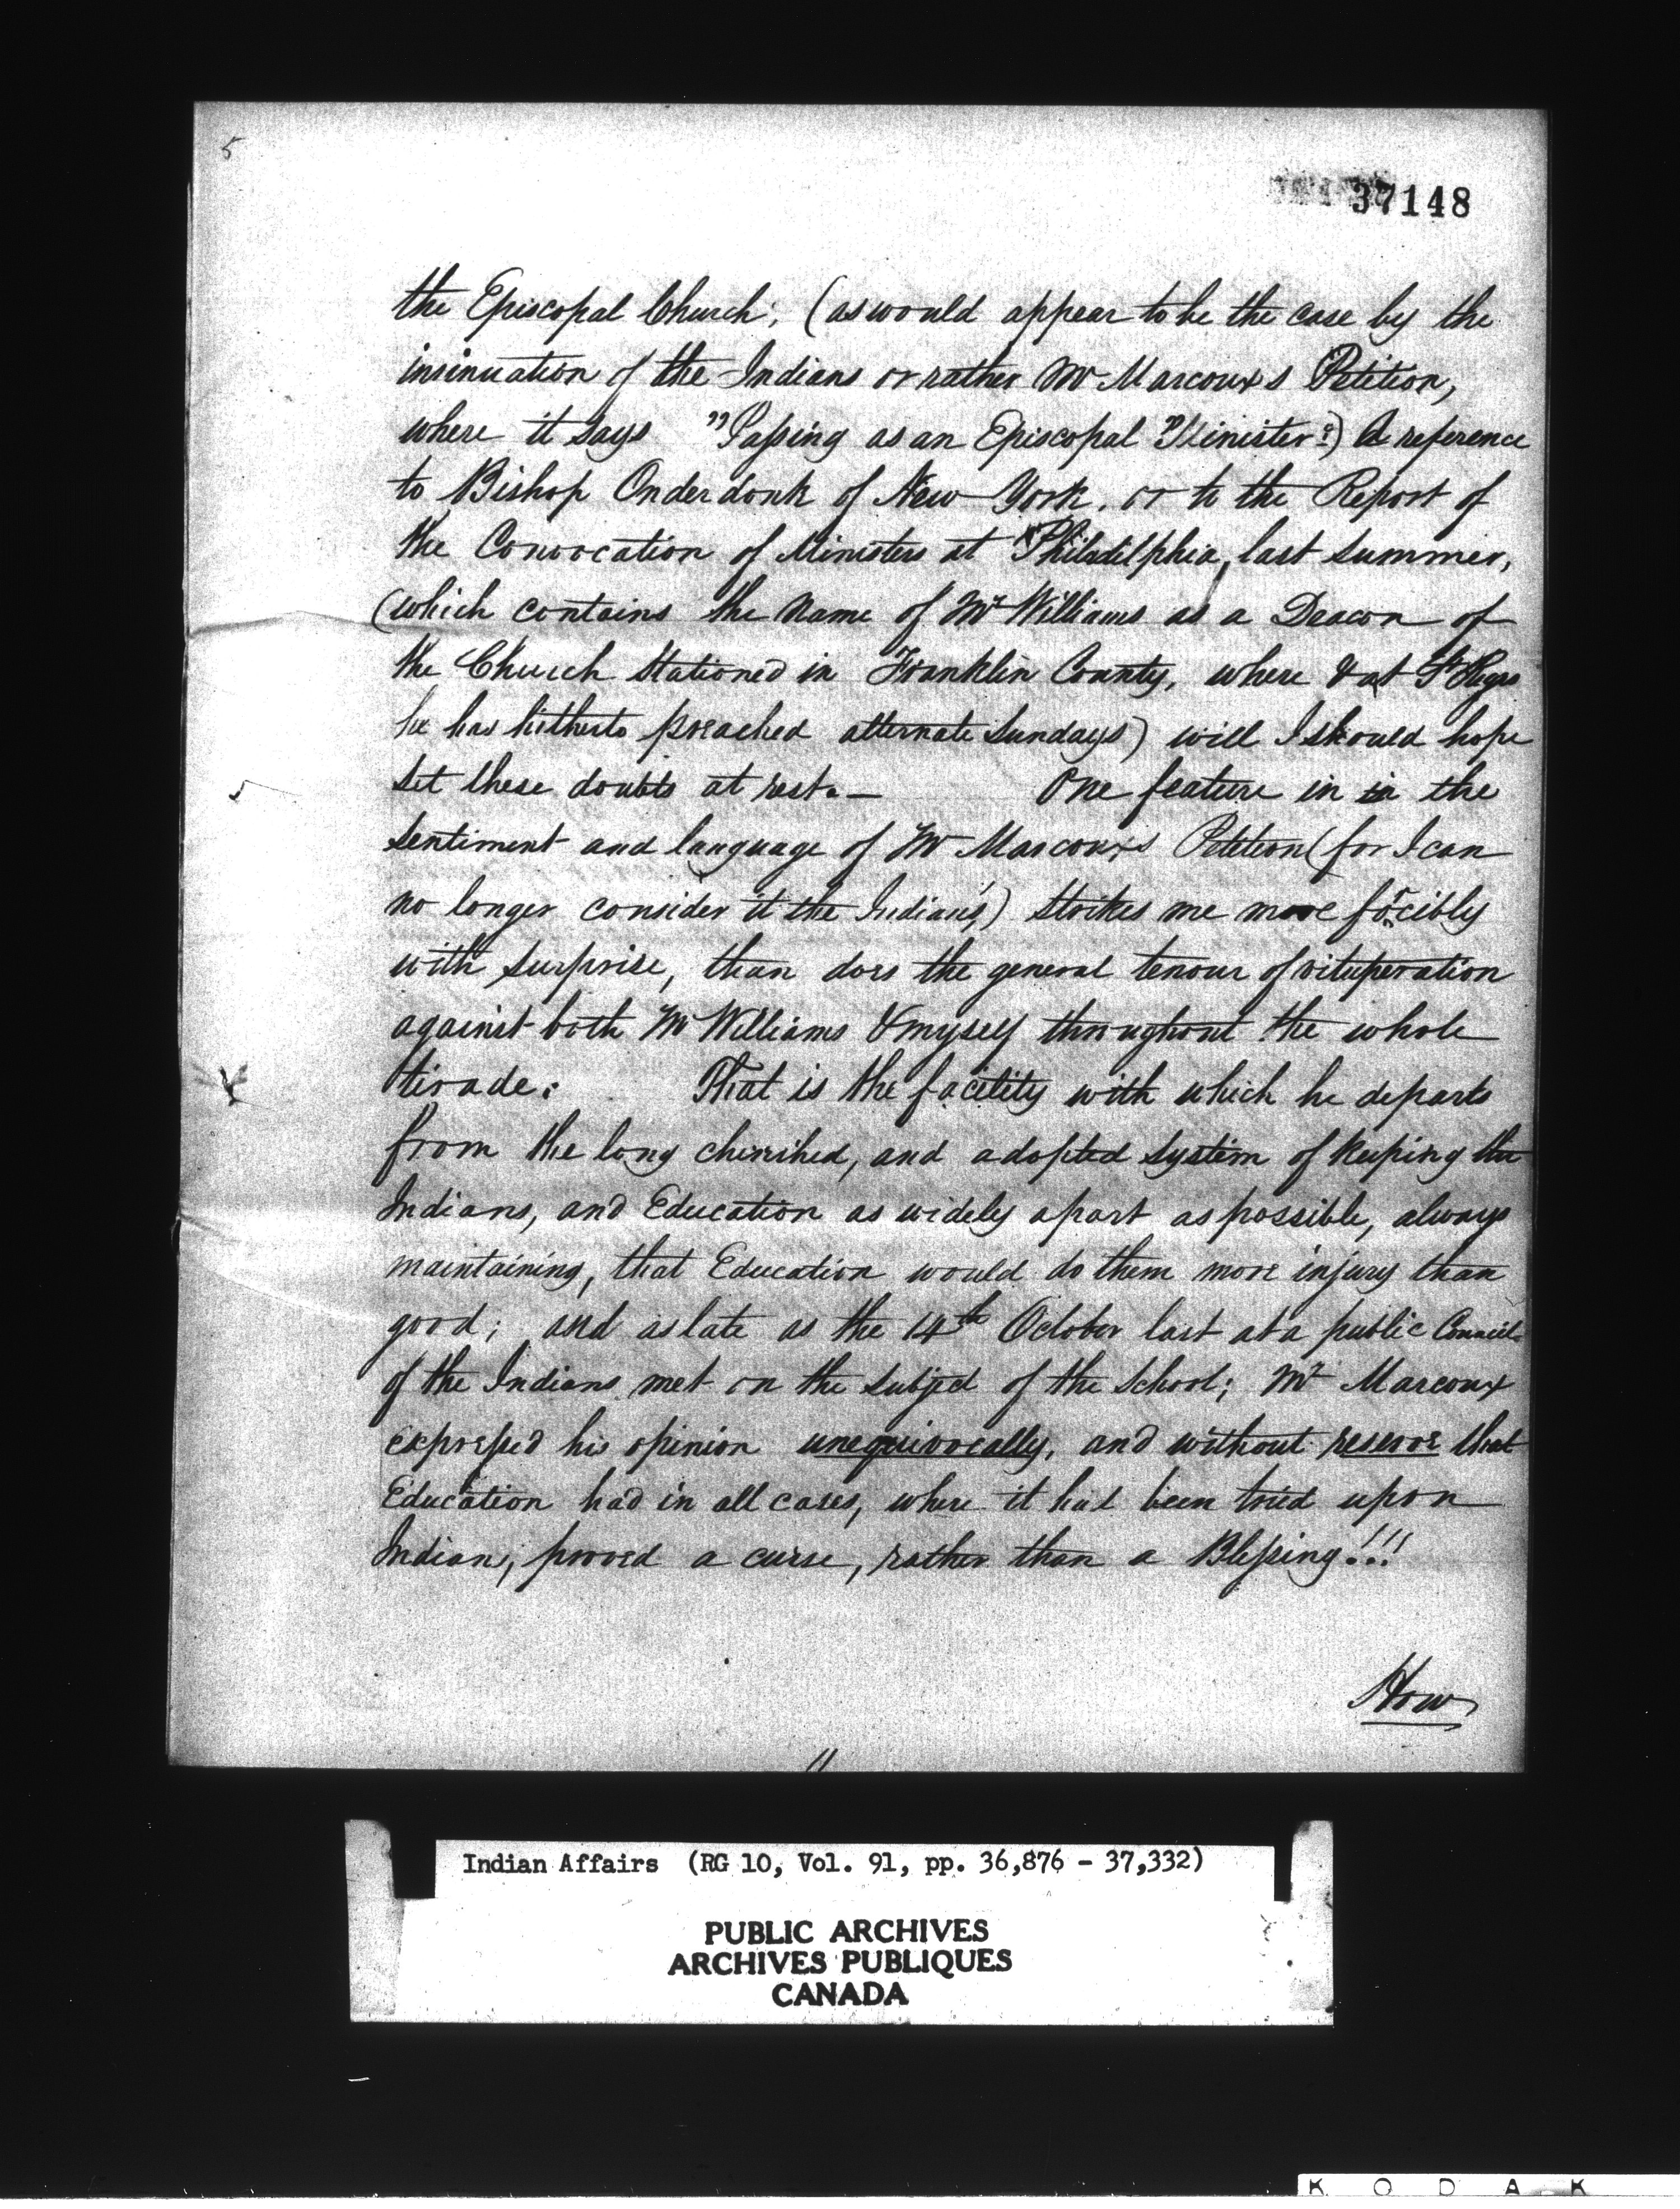 5
37148
the Episcopal Church; (as would appear to be the case by the
insinuation of the Indians or rather Mr Marcoux's Petition,
where it says "Passing as an Episcopal Minister") A reference
to Bishop Onderdonk of New York, or to the Report of
the Convocation of Ministers at Philadelphia, last summer,
(which contains the name of Mr Williams as a Deacon of
the Church stationed in Franklin County, where & at St Regis
he has hitherto preached alternate Sundays) will I should hope
set these doubts at rest. — One feature in in the
sentiment and language of Mr Marcoux's Petition (for I can
no longer consider it the Indian's) strikes me more forcibly
with surprise, than does the general tenour of vituperation
against both Mr Williams & myself throughout the whole
tirade: That is the facility with which he departs
from the long cherished, and adopted system of keeping the
Indians, and Education as widely apart as possible, always
maintaining, that Education would do them more injury than
good; and as late as the 14th October last at a public Council
of the Indians met on the subject of the School; Mr Marcoux
expressed his opinion unequivocally, and without reserve that
Education had in all cases, where it had been tried upon
Indian, proved a curse, rather than a Blessing!!!
How
11
Indian Affairs (RG 10, Vol. 91, pp. 36,876 - 37,332)
PUBLIC ARCHIVES
ARCHIVES PUBLIQUES
CANADA
KODAK